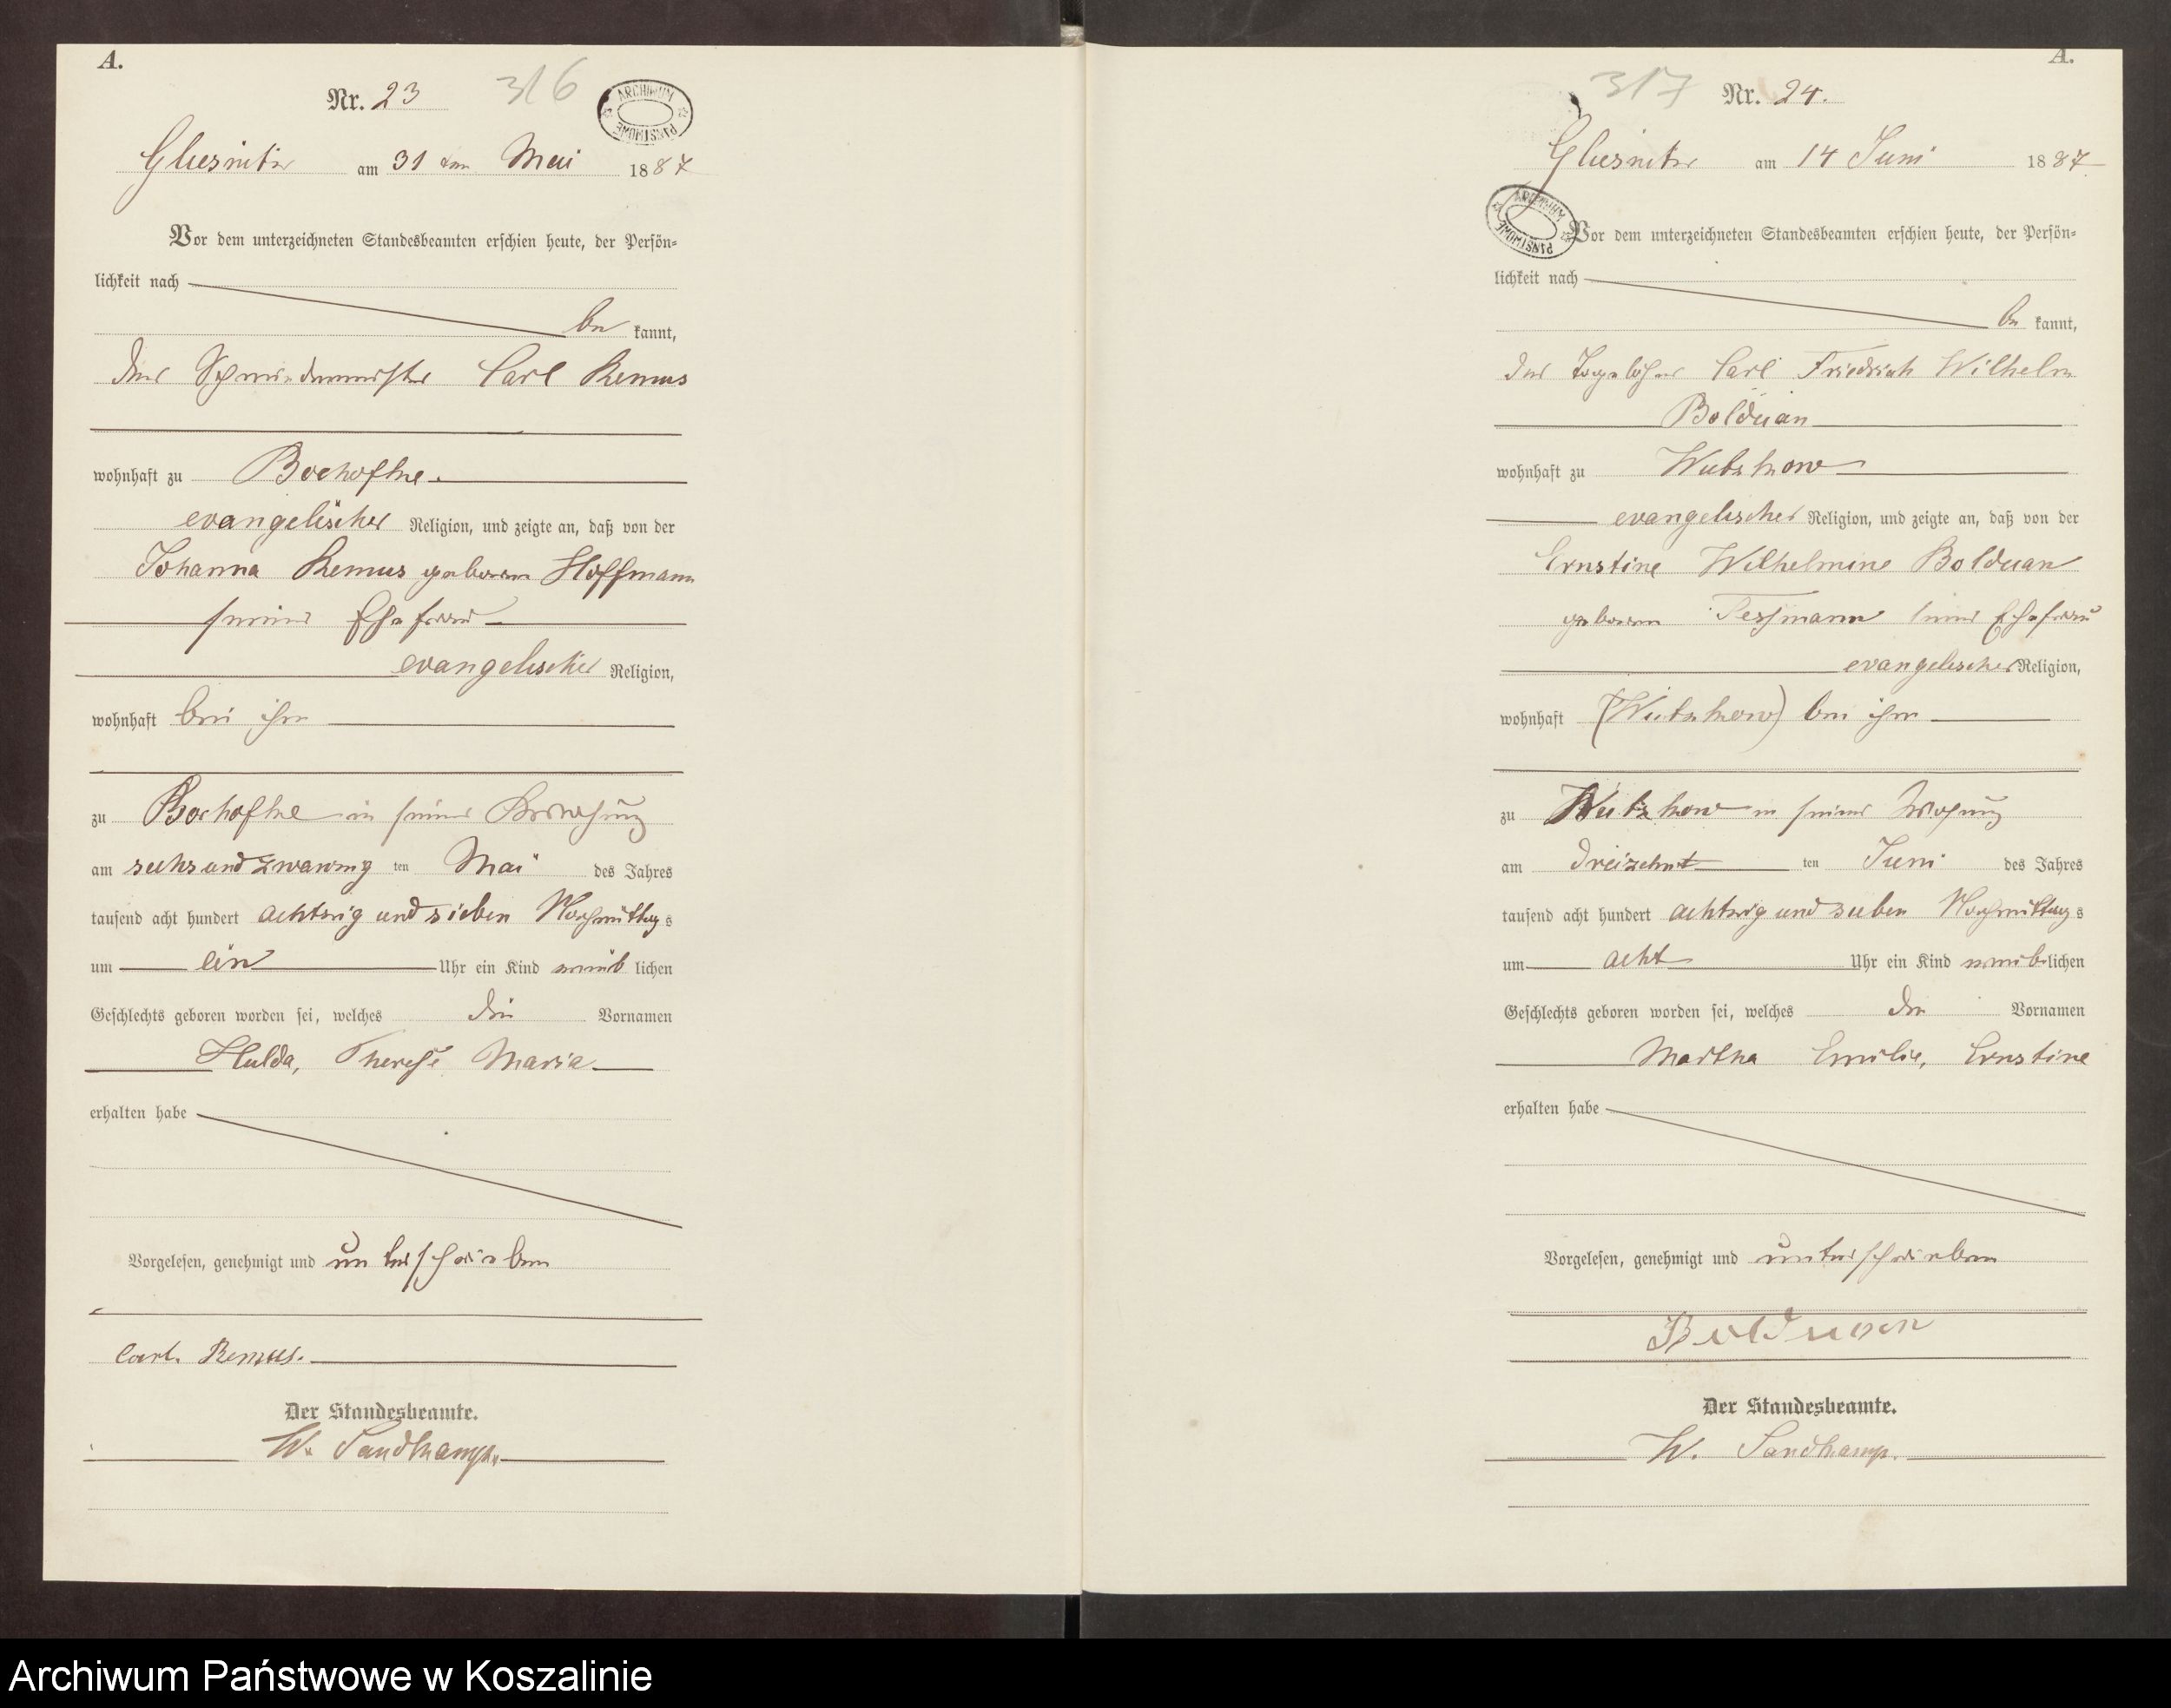 A.
Nr. 23
316
ARCHIWUM PAŃSTWOWE
Gliesnitz am 31 ten Mai 1887
Vor dem unterzeichneten Standesbeamten erschien heute, der Persön=
lichkeit nach
be kannt,
der Schmiedemeister Carl Remus
wohnhaft zu Bochofke.
evangelischer Religion, und zeigte an, daß von der
Johanna Remus geboren Hoffmann
seiner Ehefrau
evangelischer Religion,
wohnhaft bei ihm
zu Bochofke in seiner
am sechs und zwanzig ten Mai des Jahres
tausend acht hundert achtzig und sieben Nachmittag s
um ein Uhr ein Kind weib lichen
Geschlechts geboren worden sei, welches die Vornamen
Hulda, Therese Maria
erhalten habe
Vorgelesen, genehmigt und unterschrieben
Carl. Remus.
Der Standesbeamte.
W. Sandkamp.
A.
317
Nr. 24.
Gliesnitz am 14 Juni 1887
ARCHIWUM PAŃSTWOWE
Vor dem unterzeichneten Standesbeamten erschien heute, der Persön=
lichkeit nach
be kannt,
der Tagelöhner Carl Friedrich Wilhelm
Bolduan
wohnhaft zu Wutzkow
evangelischer Religion, und zeigte an, daß von der
Ernstine Wilhelmine Bolduan
geboren Tessmann seiner Ehefrau
evangelischer Religion,
wohnhaft (Wutzkow) bei ihm
zu Wutzkow in seiner Wohnung
am dreizehnt ten Juni des Jahres
tausend acht hundert achtzig und sieben Nachmittag s
um acht Uhr ein Kind weib lichen
Geschlechts geboren worden sei, welches die Vornamen
Martha Emilie, Ernstine
erhalten habe
Vorgelesen, genehmigt und unterschrieben
Bolduan
Der Standesbeamte.
W. Sandkamp.
Archiwum Państwowe w Koszalinie